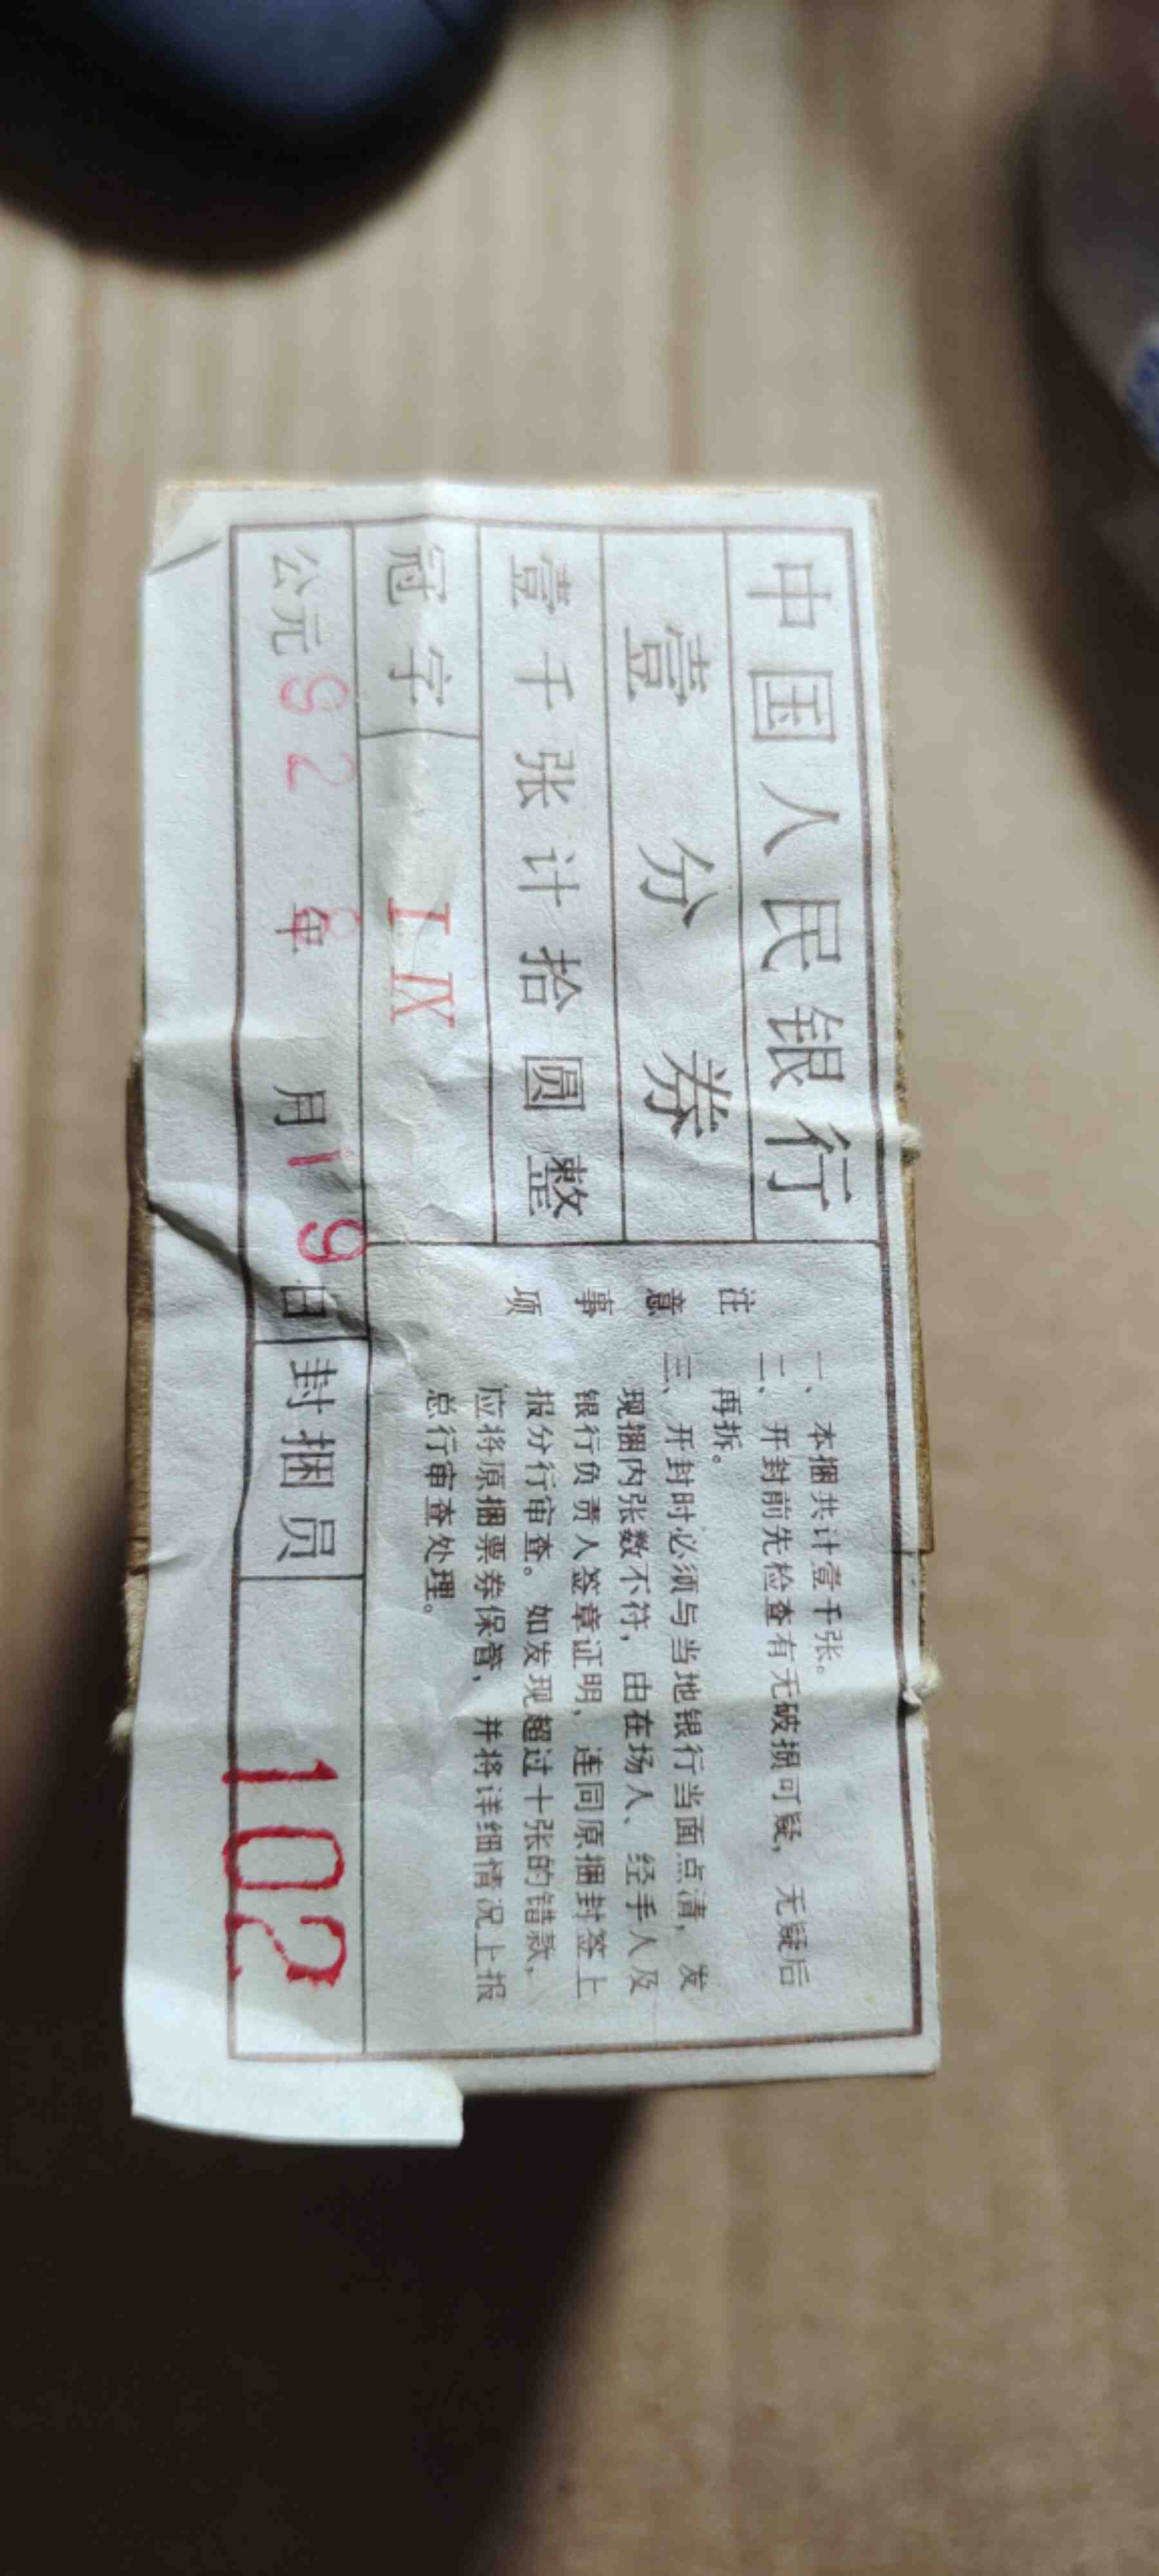 中国人民银行
壹分券
壹千张计拾圆整
冠字 I IX
公元92年8月19日
封捆员 102
注意事项
一、本捆共计壹千张。
二、开封前先检查有无破损可疑，无疑后
再拆。
三、开封时必须与当地银行当面点清，发
现捆内张数不符，由在场人、经手人及
银行负责人签章证明，连同原捆封签上
报分行审查。如发现超过十张的错款，
应将原捆票券保管，并将详细情况上报
总行审查处理。